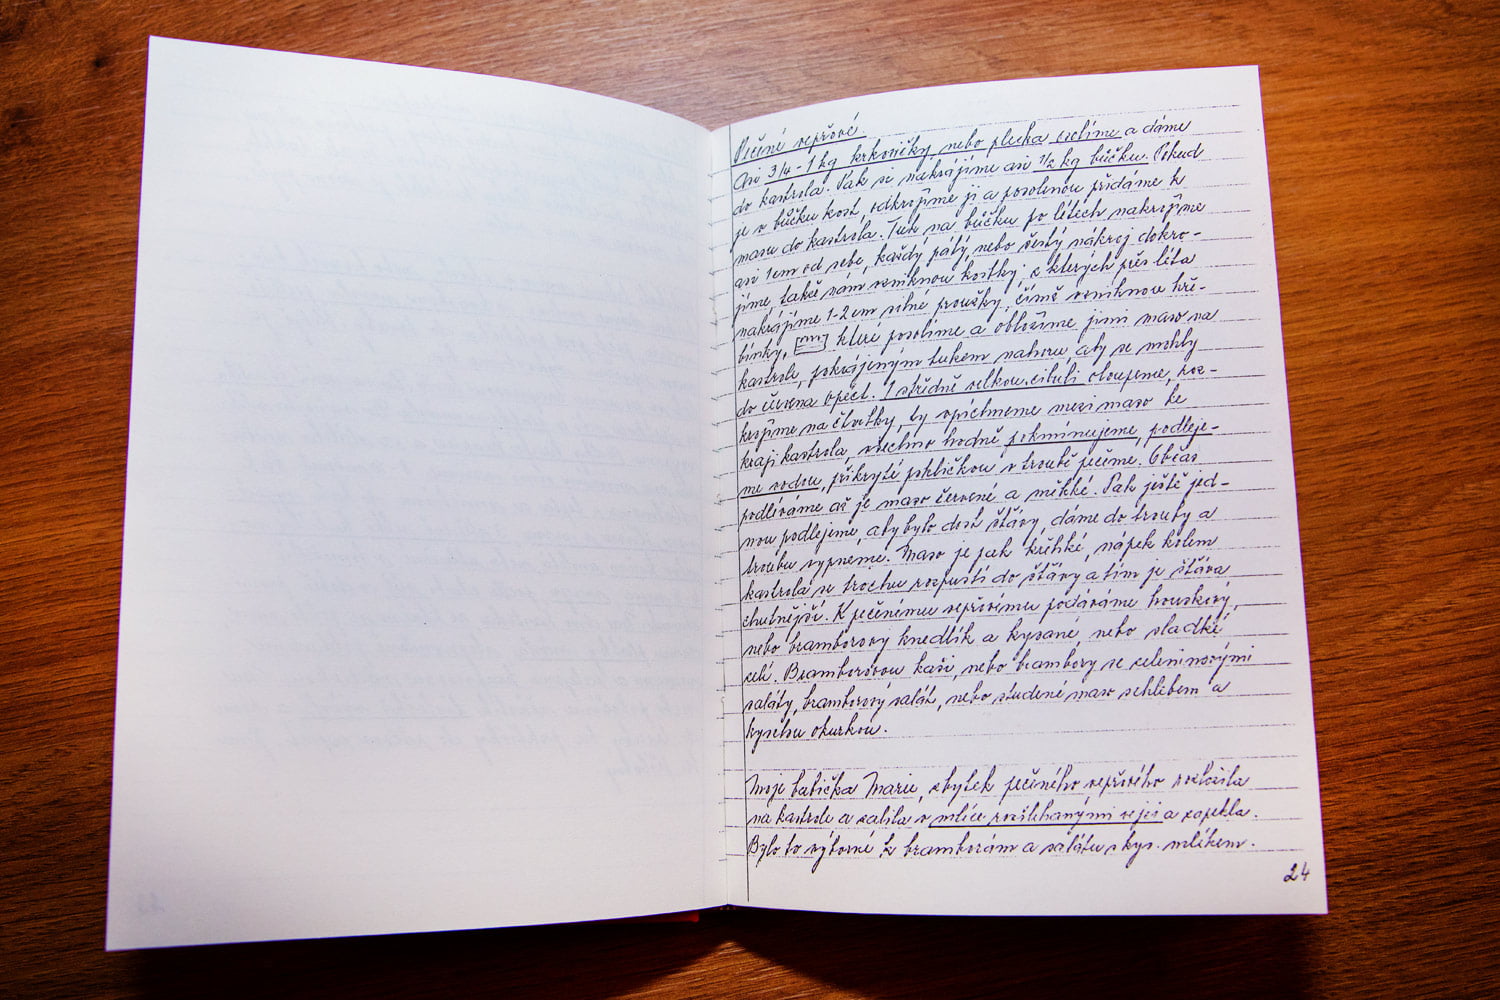 Pečené vepřové
Asi 3/4 - 1 kg krkovičky, nebo plecka osolíme a dáme
do kastrola. Pak si nakrájíme asi 1/2 kg bůčku. Pokud
je v bůčku kost, odkrojíme ji a posolenou přidáme k
masu do kastrola. Tuk na bůčku po létech nakrojíme
asi 1cm od sebe, každý pátý, nebo šestý nákroj dokro-
jíme, takže nám vzniknou kostky, z kterých přes léta
nakrájíme 1-2 cm silné proužky, čímž vzniknou hře-
bínky, které posolíme a obložíme jimi maso na
kastrole, pokrájeným tukem nahoru, aby se mohly
do červena opéct. 1 středně velkou cibuli oloupeme, roz-
krojíme na čtvrtky, ty vpíchneme mezi maso ke
kraji kastrola, všechno hodně pokmínujeme, podleje-
me vodou, přikryté pokličkou v troubě pečeme. Občas
podléváme až je maso červené a měkké. Pak ještě jed-
nou podlejeme, aby bylo dost šťávy, dáme do trouby a
troubu vypneme. Maso je pak křehké, nápek kolem
kastrola se trochu rozpustí do šťávy a tím je šťáva
chutnější. K pečenému vepřovému podáváme houskový,
nebo bramborový knedlík a kysané, nebo sladké
zelí. Bramborovou kaši, nebo brambory se zeleninovými
saláty, bramborový salát, nebo studené maso s chlebem a
kyselou okurkou.
Moje babička Marie, zbytek pečeného vepřového rozložila
na kastrole a zalila v mléce rozšlehanými vejci a zapekla.
Bylo to výborné k bramborám a salátu s kys. mlékem.
24